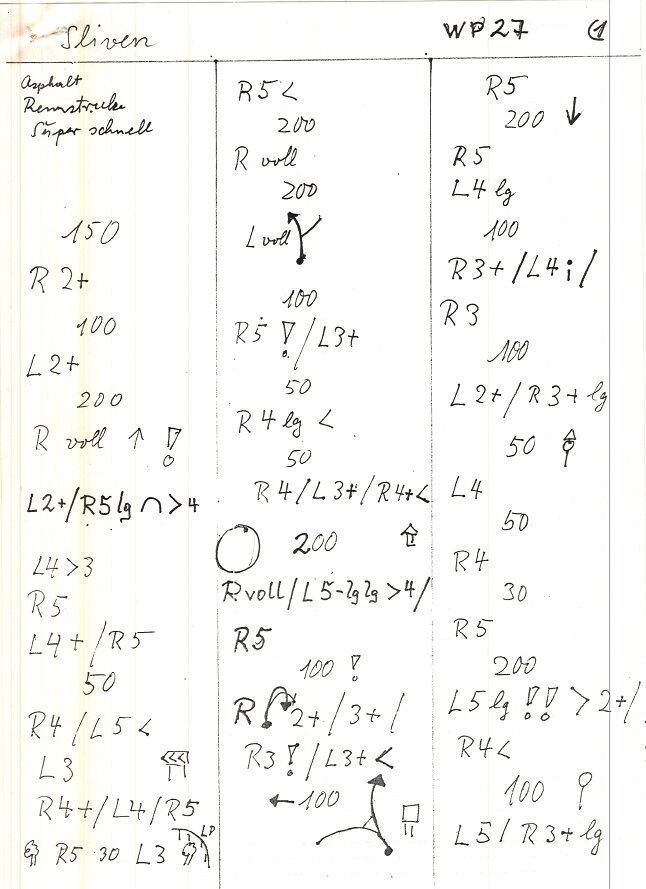 Sliven
WP27
1
Asphalt
Rennstrecke
Super schnell
150
R 2+
100
L 2+
200
R voll ↑ !
L2+/R5 lg ∩ > 4
L4>3
R5
L4+/R5
50
R4/L5<
L3
R4+/L4/R5
R5 30 L3 LP
R5<
200
R voll
200
L voll
100
R5 !/L3+
50
R4 lg <
50
R4/L3+/R4+<
200
R voll/L5-lg lg >4/
R5
100 !
R 2+/3+/
R3 !/L3+<
←100
R5
200 ↓
R5
L4 lg
100
R3+/L4¡/
R3
100
L2+/R3+ lg
50
L4
50
R4
30
R5
200
L5 lg !! > 2+/
R4<
100
L5/R3+ lg